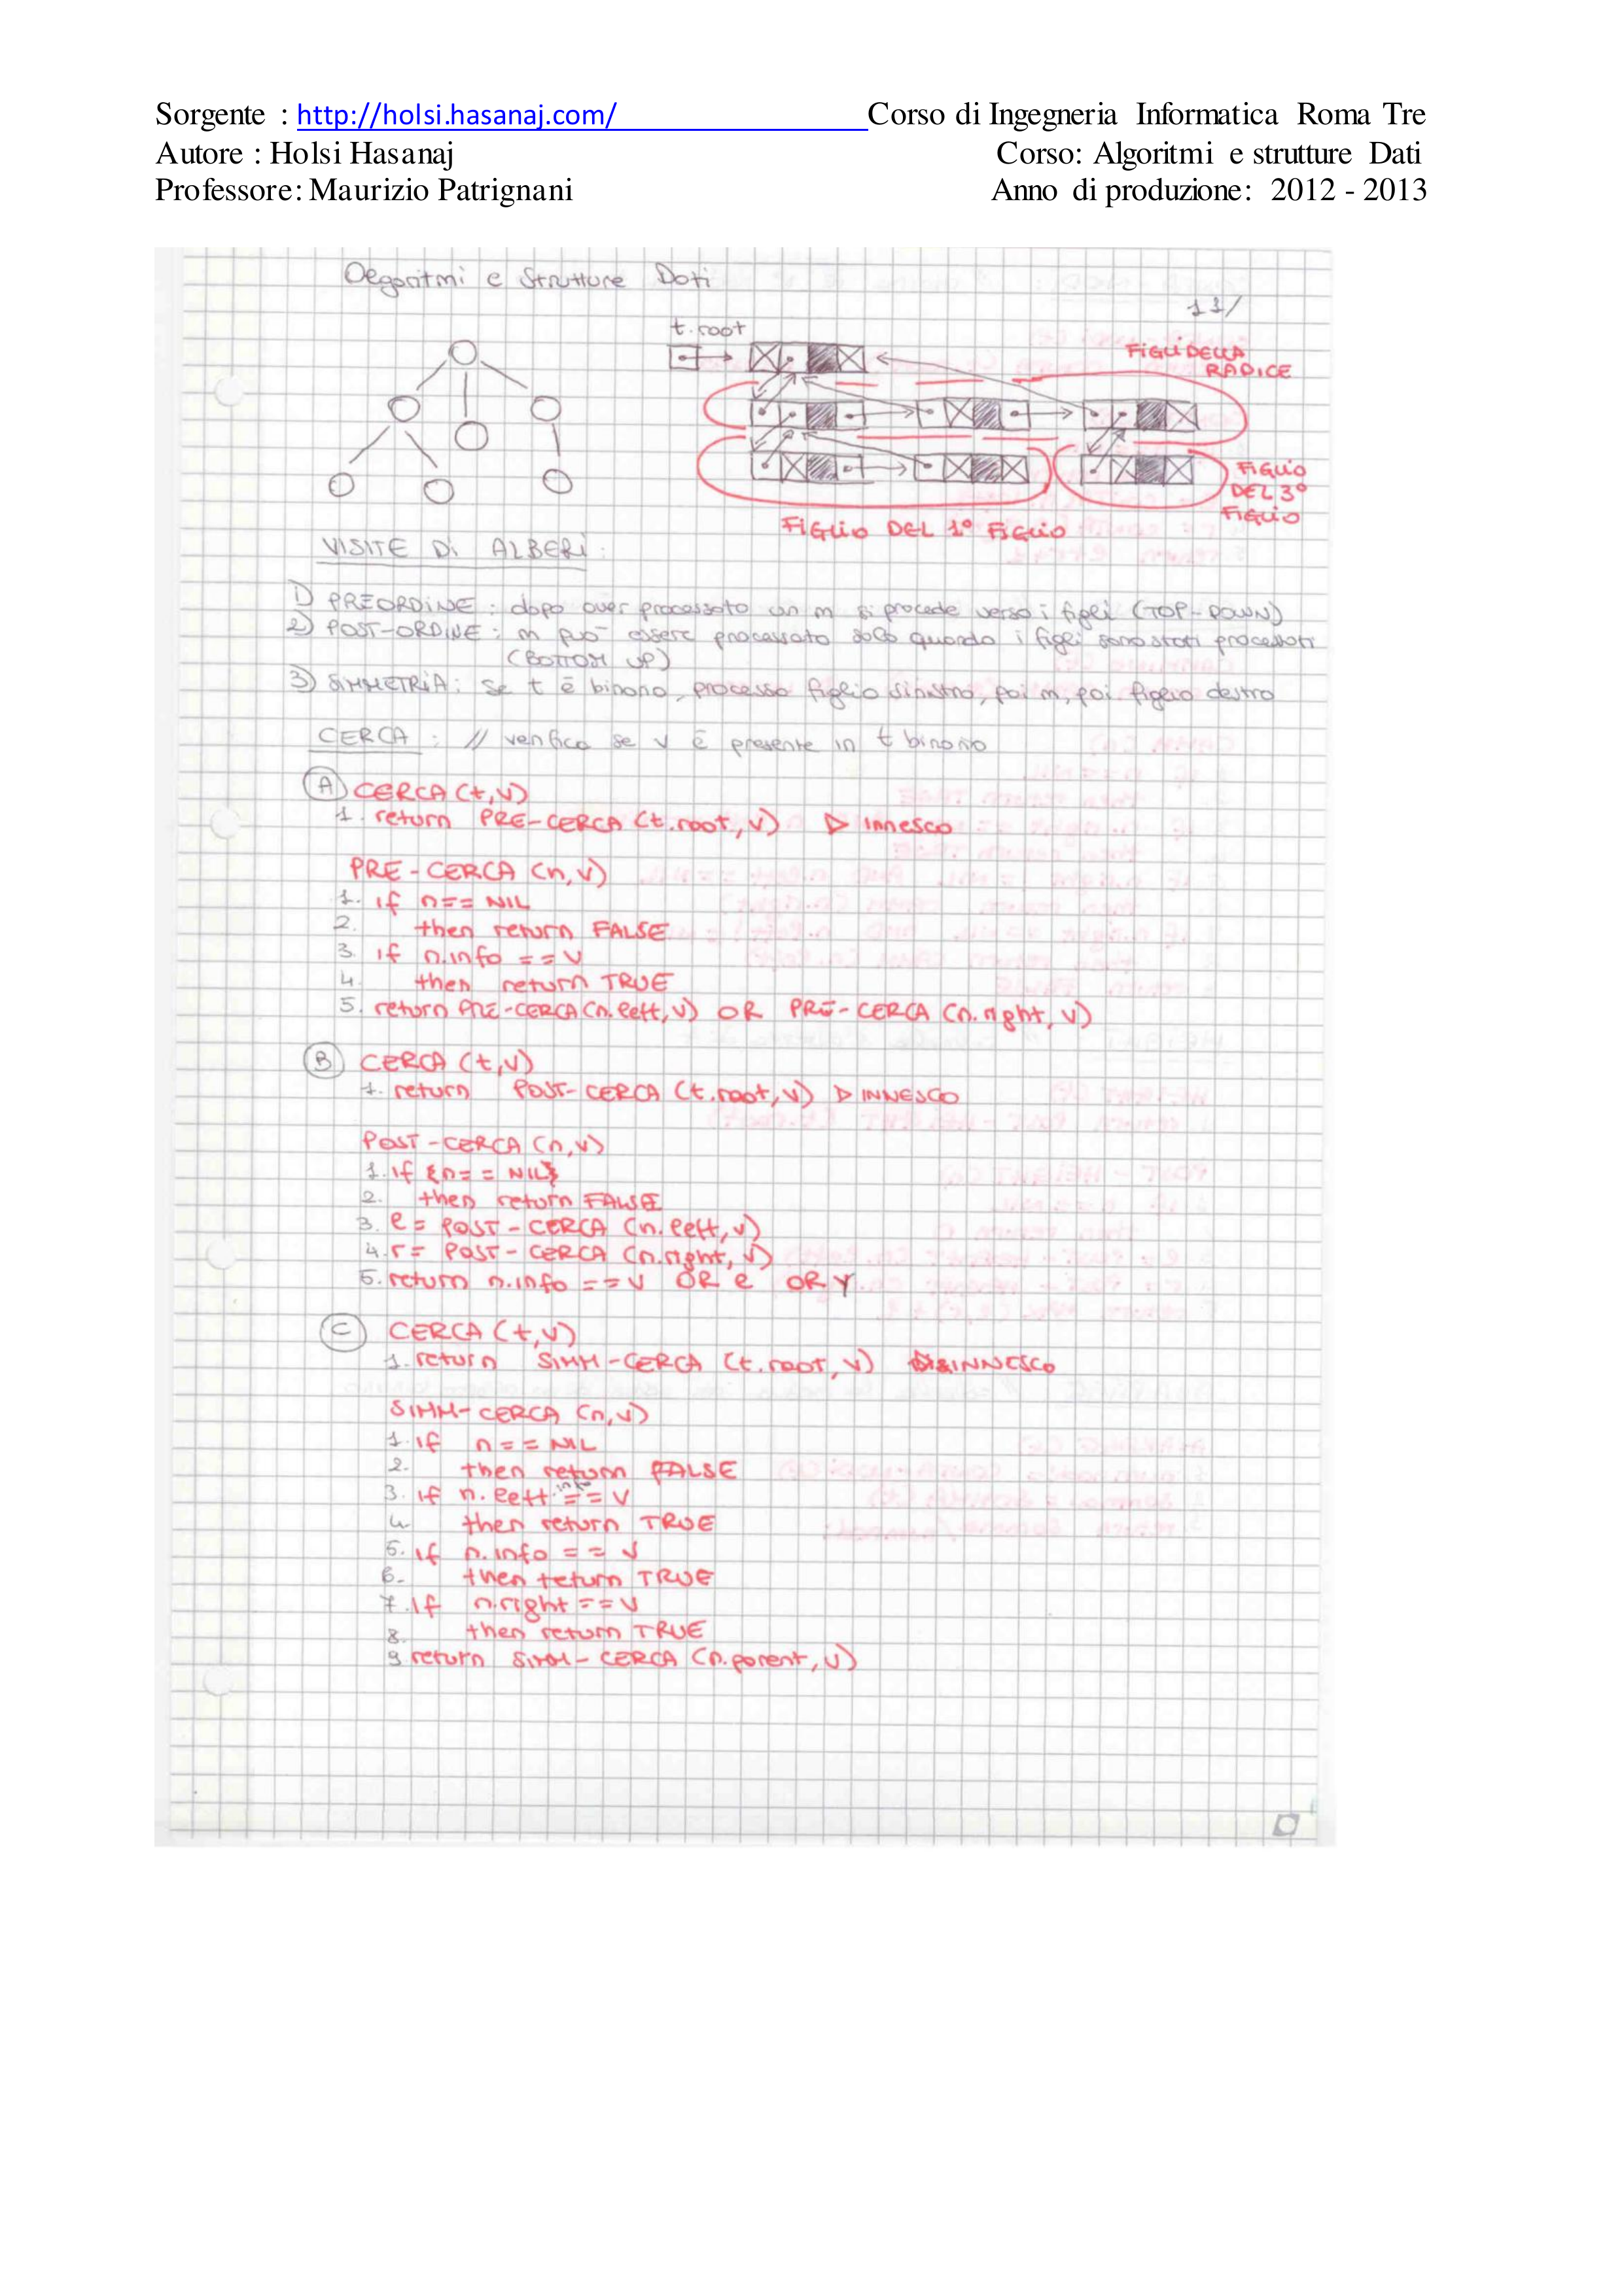 Sorgente : http://holsi.hasanaj.com/ Corso di Ingegneria Informatica Roma Tre
Autore : Holsi Hasanaj Corso: Algoritmi e strutture Dati
Professore: Maurizio Patrignani Anno di produzione: 2012 - 2013
Algoritmi e Strutture Dati
11/
t.root
FIGLI DELLA
RADICE
FIGLIO
DEL 3°
FIGLIO
FIGLIO DEL 1° FIGLIO
VISITE Di ALBERi:
1) PREORDINE: dopo aver processato un n si procede verso i figli (TOP-DOWN)
2) POST-ORDINE: n può essere processato solo quando i figli sono stati processati
(BOTTOM UP)
3) SIMMETRIA: Se t è binario, processo figlio sinistro, poi n, poi figlio destro
CERCA: // verifica se v è presente in t binario
A CERCA (t,v)
1. return PRE-CERCA (t.root, v) ▷ innesco
PRE-CERCA (n,v)
1. if n== NIL
2. then return FALSE
3. if n.info == v
4. then return TRUE
5. return PRE-CERCA(n.left, v) OR PRE-CERCA (n.right, v)
B CERCA (t,v)
1. return POST-CERCA (t.root, v) ▷ INNESCO
POST-CERCA (n,v)
1. if {n== NIL}
2. then return FALSE
3. l = POST-CERCA (n.left, v)
4. r = POST-CERCA (n.right, v)
5. return n.info == v OR l OR r
C CERCA (t,v)
1. return SIMM-CERCA (t.root, v) INNESCO
SIMM-CERCA (n,v)
1. if n == NIL
2. then return FALSE
3. if n.left.info == v
4 then return TRUE
5. if n.info == v
6. then return TRUE
7. if n.right == v
8. then return TRUE
9 return SIMM-CERCA (n.parent, v)